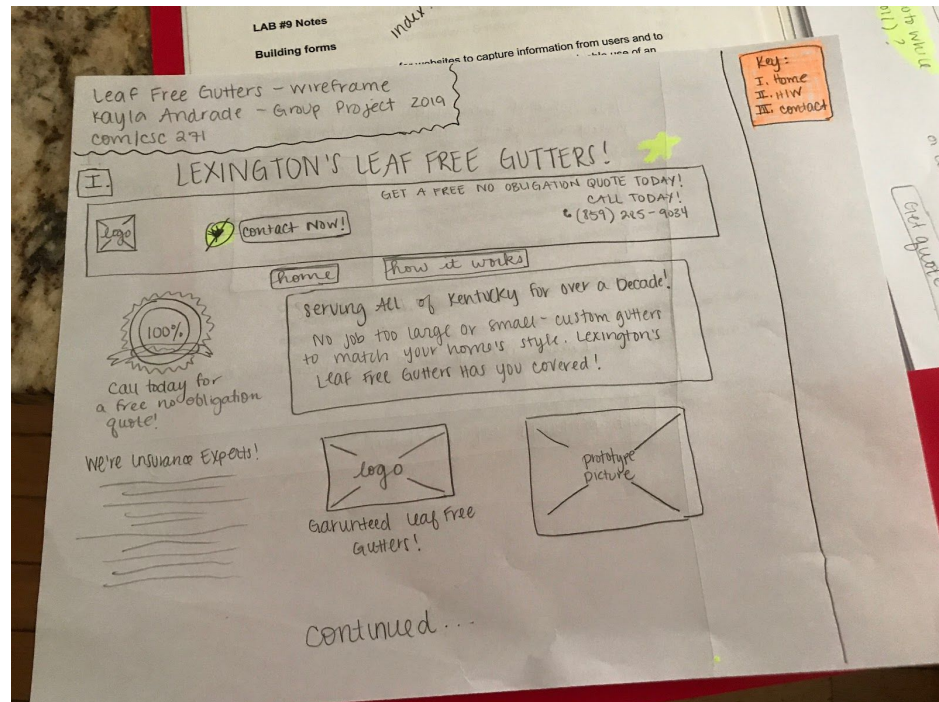 LAB #9 Notes
Building forms
index
websites to capture information from users and to
use of an
Key:
I. Home
II. HIW
III. contact
Leaf Free Gutters - wireframe
Kayla Andrade - Group Project 2019
com/csc 271
I.
LEXINGTON'S LEAF FREE GUTTERS!
GET A FREE NO OBLIGATION QUOTE TODAY!
CALL TODAY!
(859) 285-9034
logo
contact NOW!
home
how it works
100%
serving All of Kentucky for over a Decade!
No job too large or small - custom gutters
to match your home's style. Lexington's
Leaf Free Gutters Has you covered!
Call today for
a free no obligation
quote!
We're Insurance Experts!
logo
Garunteed Leaf Free
Gutters!
prototype
picture
continued...
Get quote